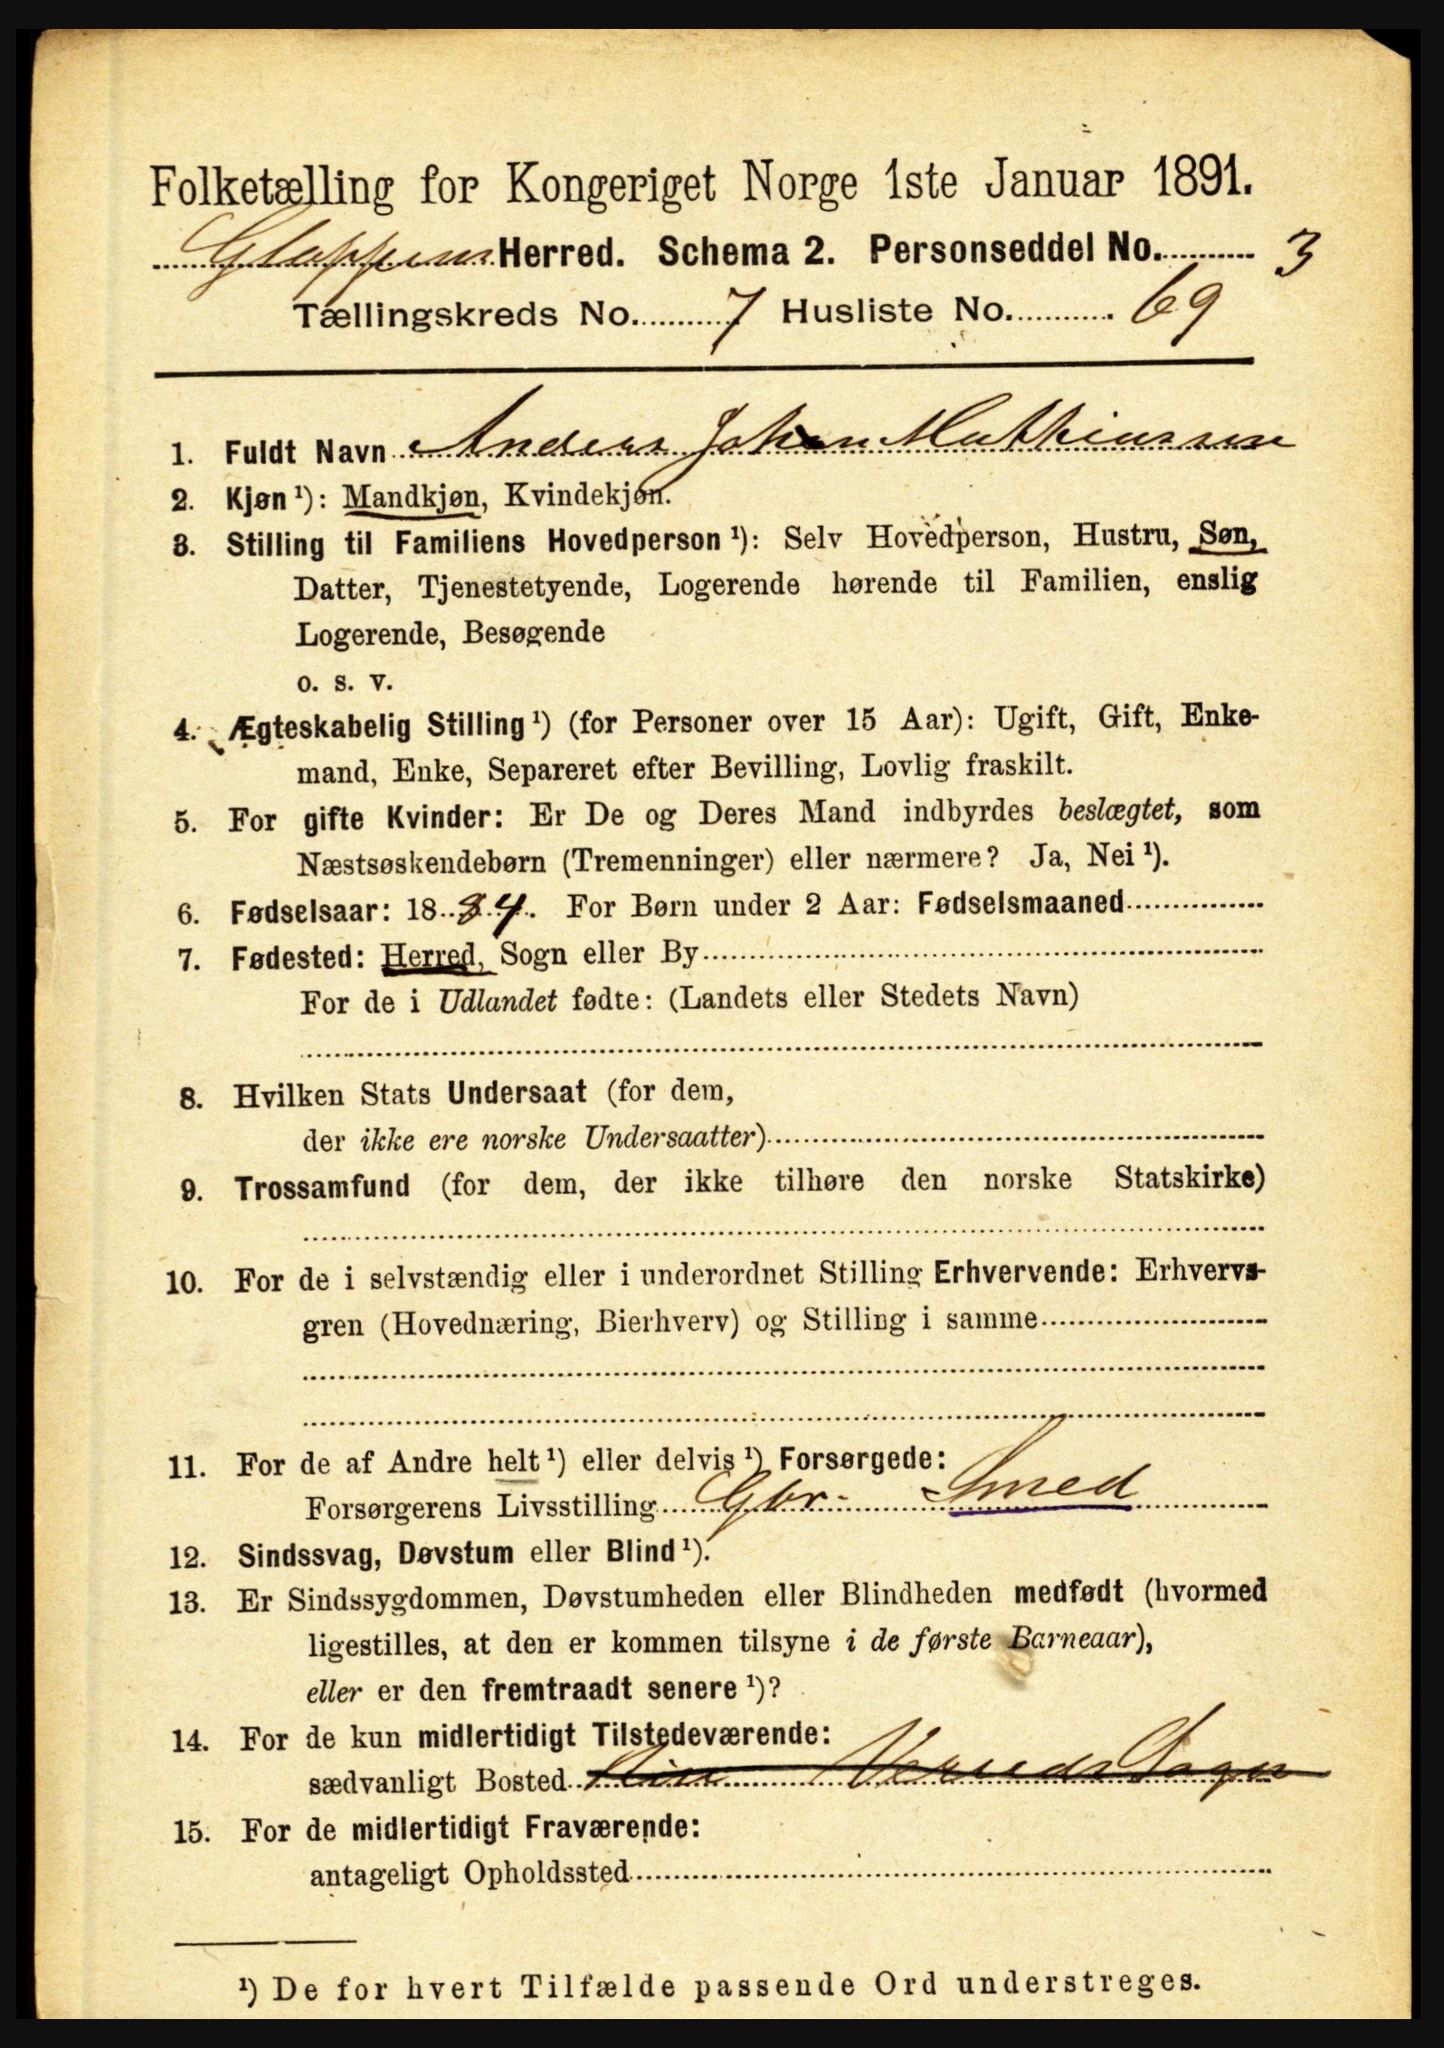 Folketælling for Kongeriget Norge 1ste Januar 1891.
Gloppen Herred. Schema 2. Personseddel No. 3
Tællingskreds No. 7 Husliste No. 69
1. Fuldt Navn Anders Johan Mathiassen
2. Kjøn¹): Mandkjøn, Kvindekjøn.
3. Stilling til Familiens Hovedperson¹): Selv Hovedperson, Hustru, Søn,
Datter, Tjenestetyende, Logerende hørende til Familien, enslig
Logerende, Besøgende
o. s. v.
4. Ægteskabelig Stilling¹) (for Personer over 15 Aar): Ugift, Gift, Enke-
mand, Enke, Separeret efter Bevilling, Lovlig fraskilt.
5. For gifte Kvinder: Er De og Deres Mand indbyrdes beslægtet, som
Næstsøskendebørn (Tremenninger) eller nærmere? Ja, Nei¹).
6. Fødselsaar: 1884. For Børn under 2 Aar: Fødselsmaaned
7. Fødested: Herred, Sogn eller By
For de i Udlandet fødte: (Landets eller Stedets Navn)
8. Hvilken Stats Undersaat (for dem,
der ikke ere norske Undersaatter)
9. Trossamfund (for dem, der ikke tilhøre den norske Statskirke)
10. For de i selvstændig eller i underordnet Stilling Erhvervende: Erhvervs-
gren (Hovednæring, Bierhverv) og Stilling i samme
11. For de af Andre helt¹) eller delvis¹) Forsørgede:
Forsørgerens Livsstilling Gbr. Smed
12. Sindssvag, Døvstum eller Blind¹).
13. Er Sindssygdommen, Døvstumheden eller Blindheden medfødt (hvormed
ligestilles, at den er kommen tilsyne i de første Barneaar),
eller er den fremtraadt senere¹)?
14. For de kun midlertidigt Tilstedeværende:
sædvanligt Bosted Sogn
15. For de midlertidigt Fraværende:
antageligt Opholdssted
¹) De for hvert Tilfælde passende Ord understreges.